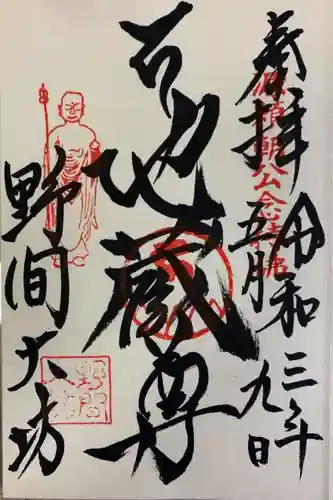 奉拝
令和三年
五月九日
源頼朝公念持佛
地蔵尊
野間大坊